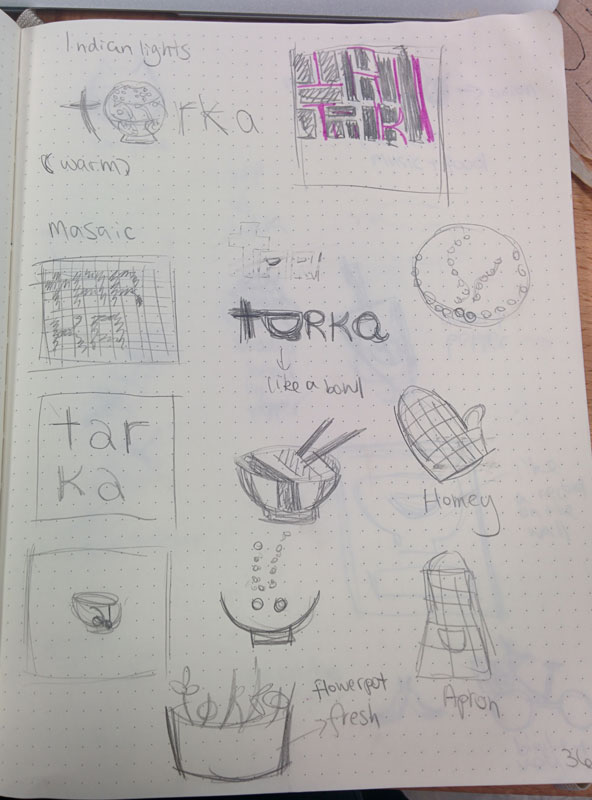 Indian lights
t rka
(warm)
TAR
KA
Masaic
TAR
KA
tarka
like a bowl
tar
ka
Homey
flowerpot
fresh
Apron
36